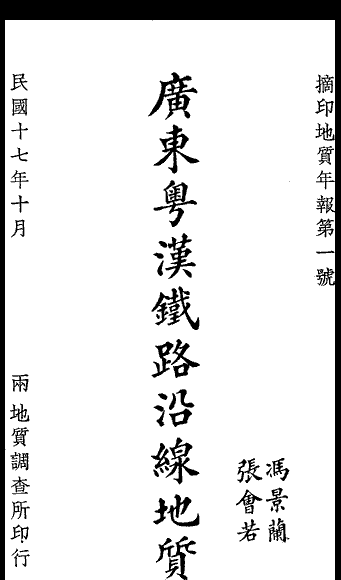 摘印地質年報第一號
馮景蘭
張會若
廣東粤漢鐵路沿線地質
民國十七年十月
兩 地質調查所印行